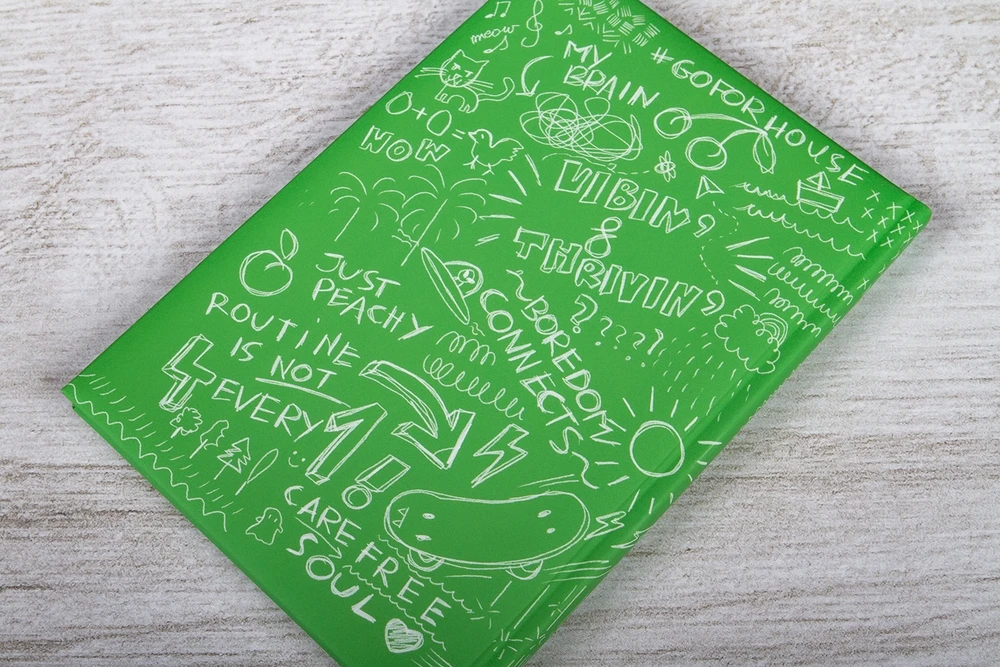 meow
MY
BRAIN
#GOFORHOUSE
O+O=
NOW
VIBIN'
&
THRIVIN'
? ? ? ? ?
JUST
PEACHY
~BOREDOM
CONNECTS~
ROUTINE
IS NOT
4 EVERY 1!
CAREFREE
SOUL